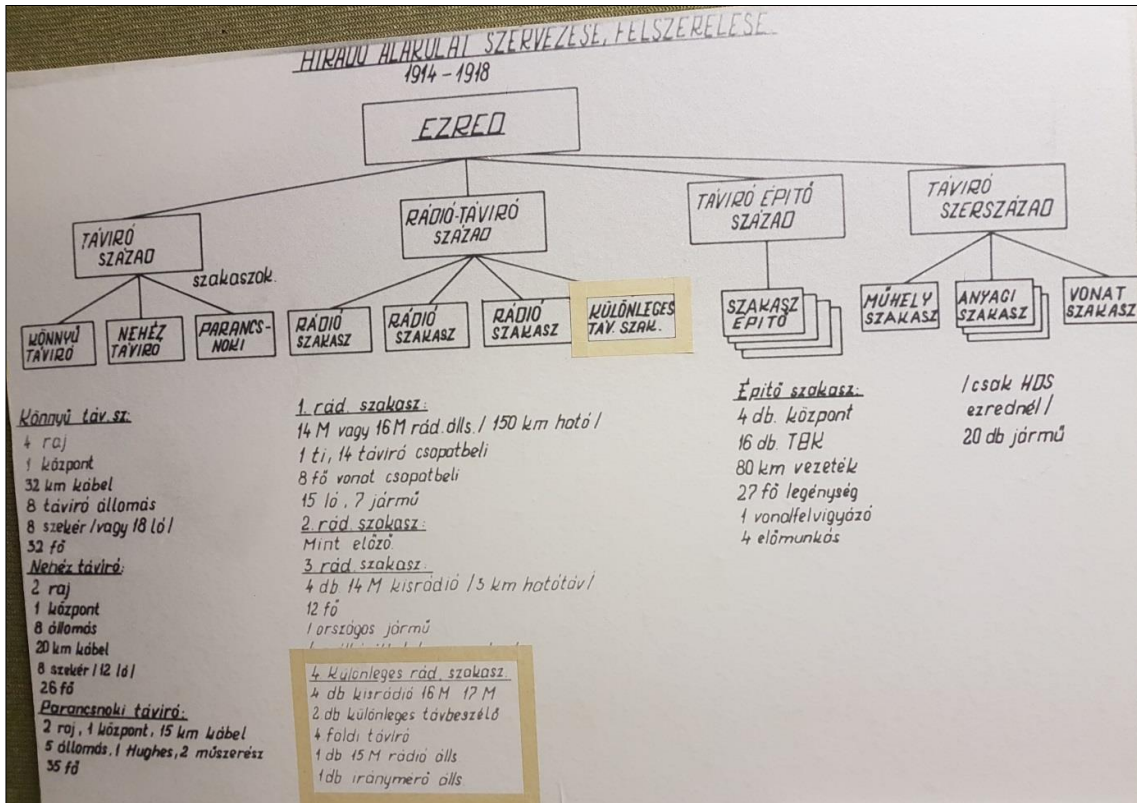 HIRADÓ ALAKULAT SZERVEZÉSE, FELSZERELÉSE
1914 - 1918
EZRED
TÁVIRÓ
SZÁZAD
RÁDIÓ-TÁVIRÓ
SZÁZAD
TÁVIRÓ ÉPITŐ
SZÁZAD
TÁVIRÓ
SZERSZÁZAD
szakaszok.
KÖNNYŰ
TÁVIRÓ
NEHÉZ
TÁVIRÓ
PARANCS-
NOKI
RÁDIÓ
SZAKASZ
RÁDIÓ
SZAKASZ
RÁDIÓ
SZAKASZ
KÜLÖNLEGES
TÁV. SZAK.
SZAKASZ
ÉPITŐ
MŰHELY
SZAKASZ
ANYAGI
SZAKASZ
VONAT
SZAKASZ
Könnyű táv.sz:
4 raj
1 központ
32 km kábel
8 táviró állomás
8 szekér /vagy 18 ló/
32 fő
Nehéz táviró:
2 raj
1 központ
8 állomás
20 km kábel
8 szekér /12 ló/
26 fő
Parancsnoki táviró:
2 raj, 1 központ, 15 km kábel
5 állomás, 1 Hughes, 2 műszerész
35 fő
1. rád. szakasz:
14 M vagy 16 M rád. álls. / 150 km ható /
1 ti, 14 táviró csopotbeli
8 fő vonat csopatbeli
15 ló, 7 jármű
2. rád. szakasz:
Mint előző.
3 rád. szakasz:
4 db 14 M kisrádió /5 km hatótáv/
12 fő
1 országos jármű
4 Különleges rád. szakasz:
4 db kisrádió 16 M 17 M
2 db különleges távbeszélő
4 földi táviró
1 db 15 M rádió álls.
1 db iránymérő álls.
Épitő szakasz:
4 db. központ
16 db. TBK
80 km vezeték
27 fő legénység
1 vonalfelvigyázó
4 előmunkás
/csak HDS
ezrednél/
20 db jármű